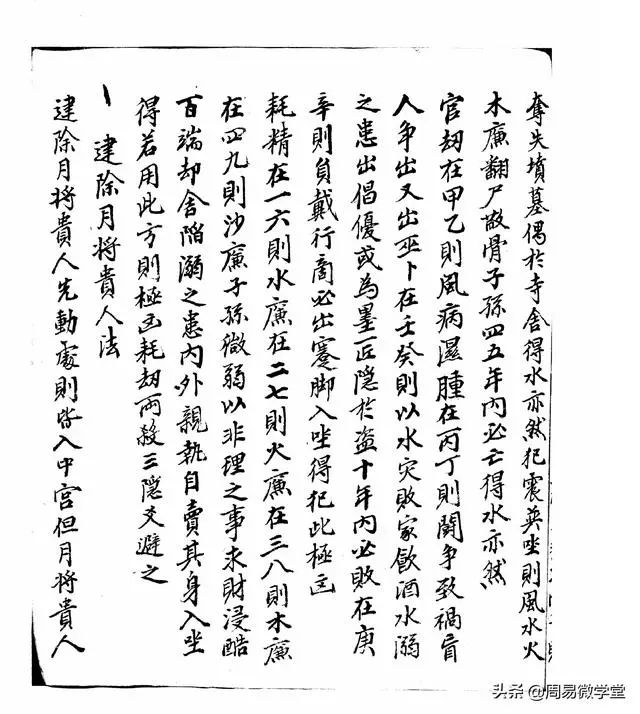 奪失墳墓偶於寺舍得水亦然犯震巽坐則風水火
木廉翻尸散骨子孫四五年內必亡得水亦然
官刼在甲乙則風病濕腫在丙丁則鬪争致禍盲
人争出又出巫卜在壬癸則以水灾敗家飮酒水溺
之患出倡優或為墨匠隠於盗十年內必敗在庚
辛則負戴行商必出蹇脚入坐得犯此極凶
耗精在一六則水廉在二七則火廉在三八則木廉
在四九則沙廉子孫微弱以非理之事求財浸酷
百端却舍陷溺之患内外親執自賣其身入坐
得若用此方則極凶耗刼兩殺三隠爻避之
建除月將貴人法
建除月將貴人先動處則皆入中宮但月將貴人
头条 @周易微学堂